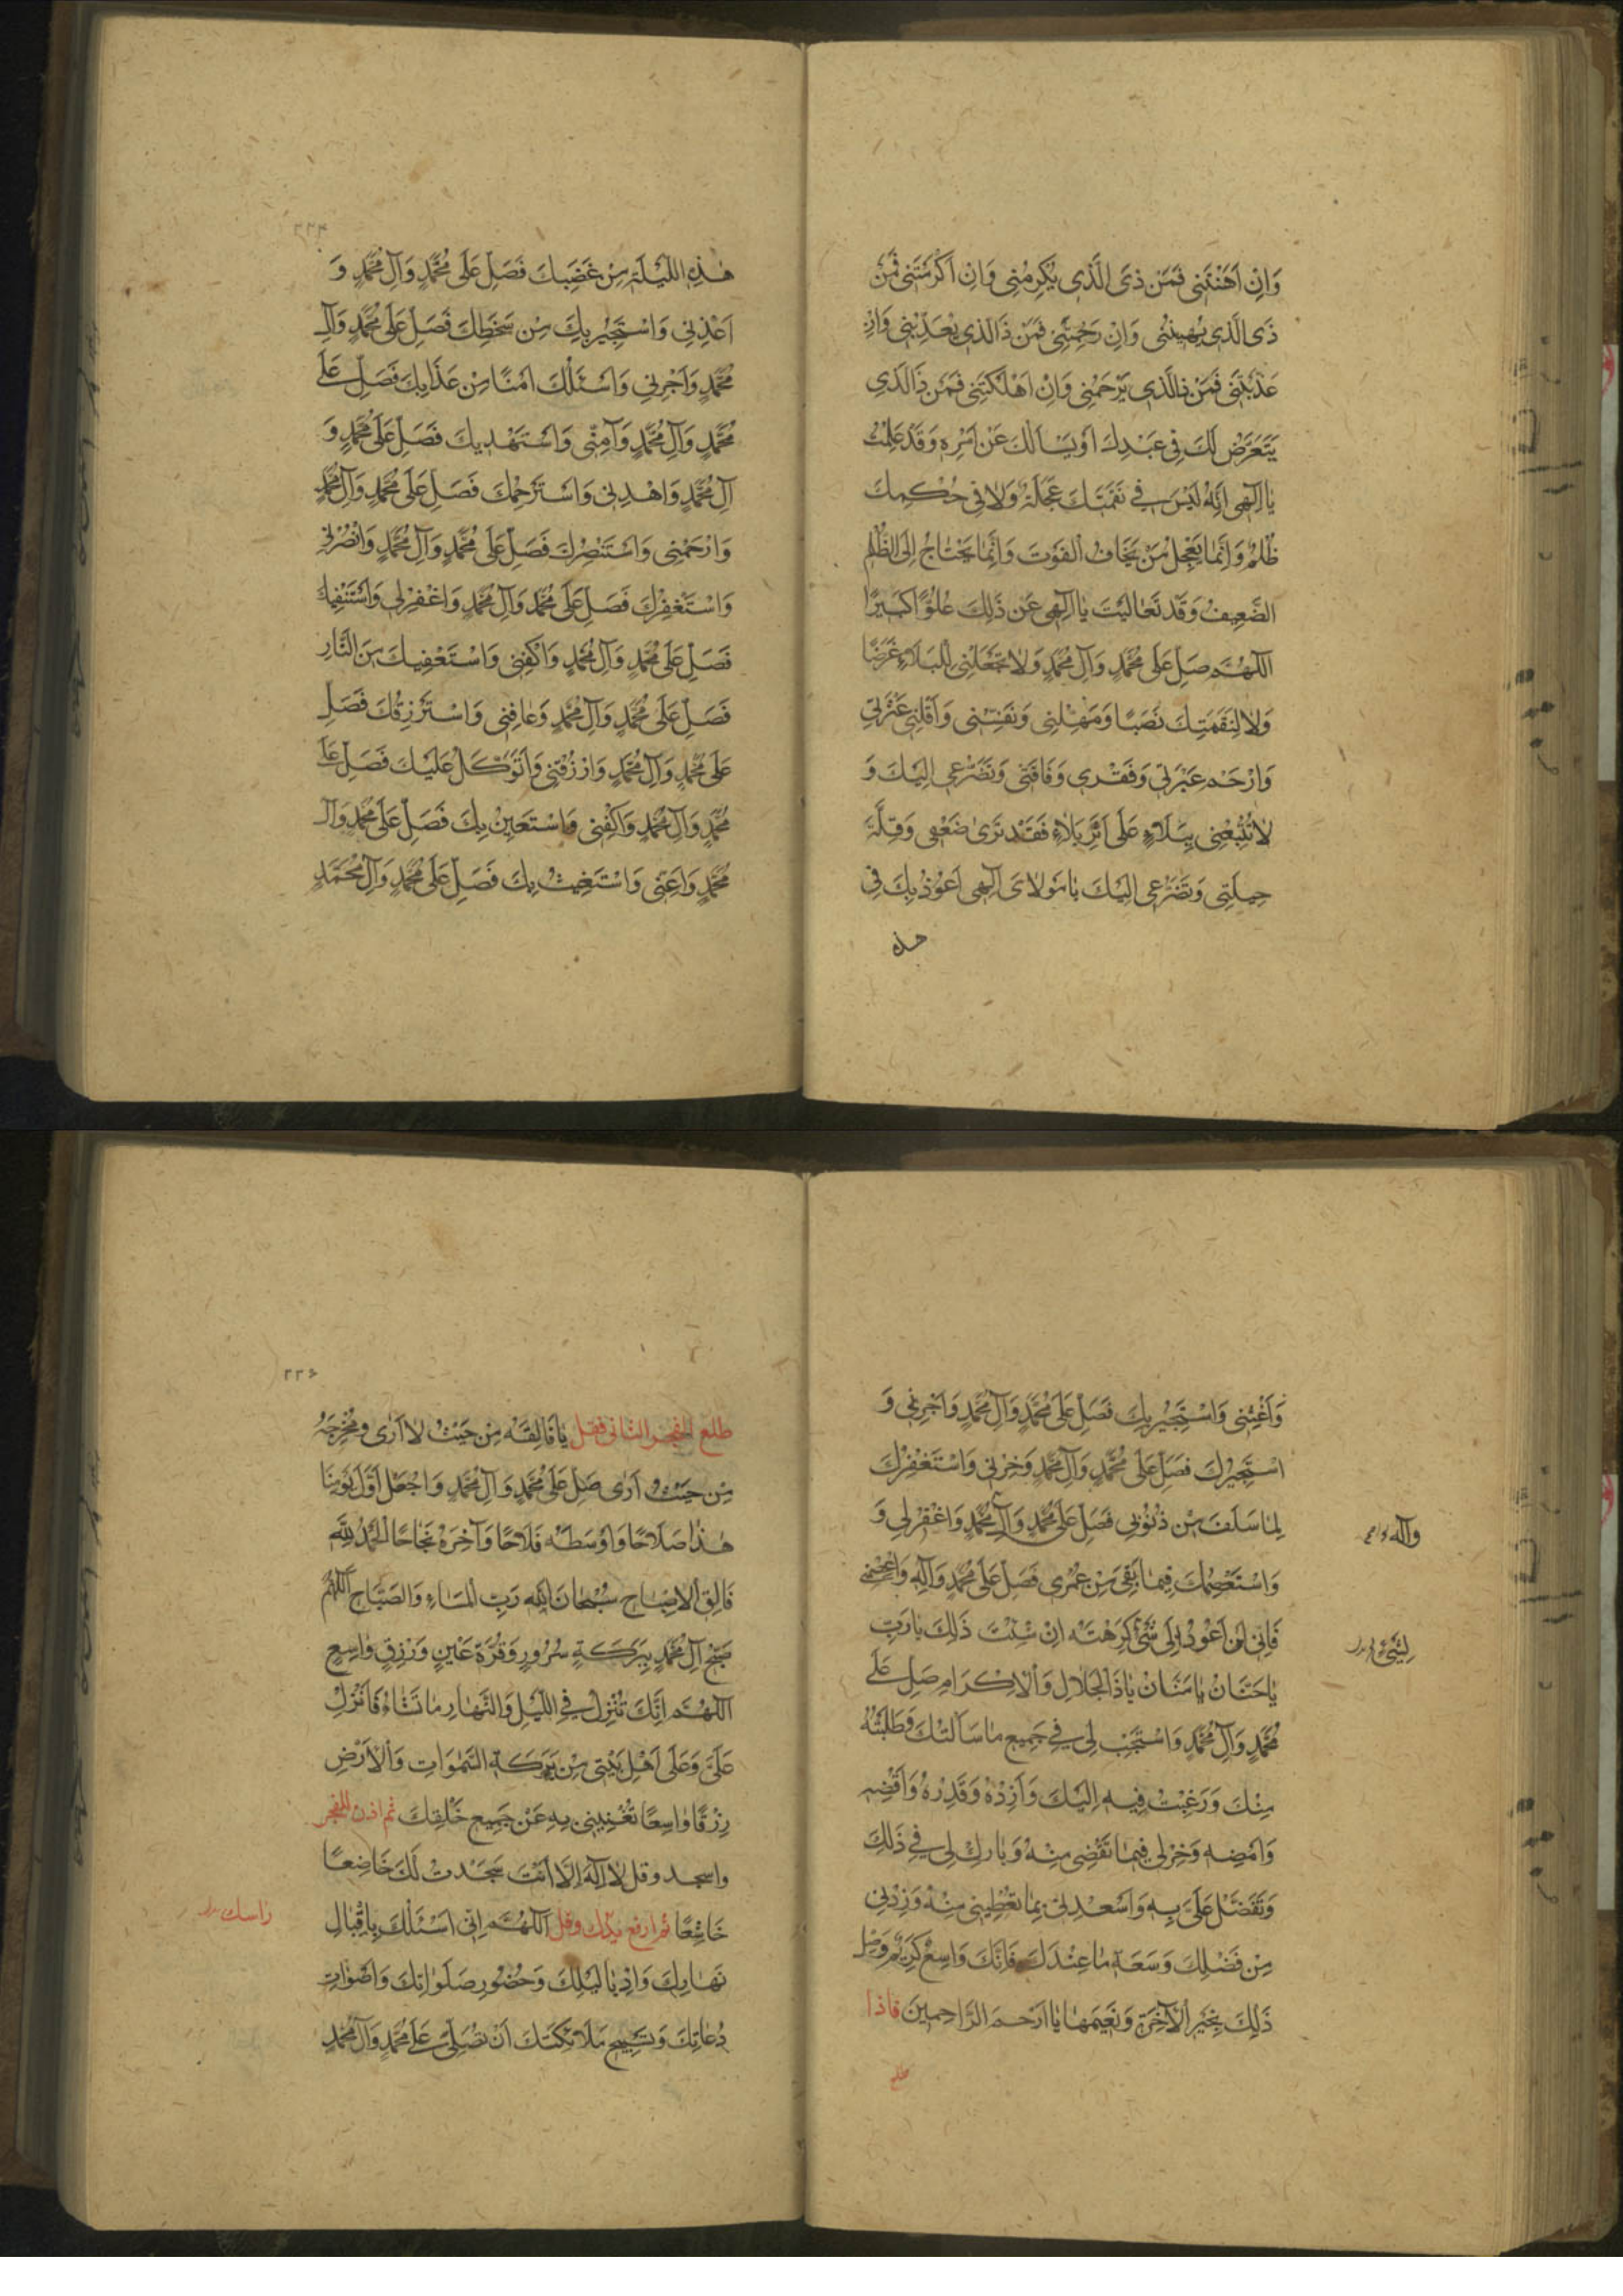 وَاِنْ اَهَنْتَنِي فَمَنْ ذَى الَّذِي يُكْرِمُنِي وَاِنْ اَكْرَمْتَنِي فَمَنْ
ذَى الَّذِي يُهِينُنِي وَاِنْ رَحِمْتَنِي فَمَنْ ذَا الَّذِي يُعَذِّبُنِي وَاِنْ
عَذَّبْتَنِي فَمَنْ ذَا الَّذِي يَرْحَمُنِي وَاِنْ اَهْلَكْتَنِي فَمَنْ ذَا الَّذِي
يَتَعَرَّضُ لَكَ فِي عَبْدِكَ اَوْ يَسْاَلُكَ عَنْ اَمْرِهِ وَقَدْ عَلِمْتُ
يَا اِلٰهِي اَنَّهُ لَيْسَ فِي نَقِمَتِكَ عَجَلَةٌ وَلَا فِي حُكْمِكَ
ظُلْمٌ وَاِنَّمَا يَعْجَلُ مَنْ يَخَافُ الْفَوْتَ وَاِنَّمَا يَحْتَاجُ اِلَى الظُّلْمِ
الضَّعِيفُ وَقَدْ تَعَالَيْتَ يَا اِلٰهِي عَنْ ذَلِكَ عُلُوًّا كَبِيرًا
اَللّٰهُمَّ صَلِّ عَلَى مُحَمَّدٍ وَآلِ مُحَمَّدٍ وَلَا تَجْعَلْنِي لِلْبَلَاءِ غَرَضًا
وَلَا لِنَقِمَتِكَ نَصَبًا وَمَهِّلْنِي وَنَفِّسْنِي وَاَقِلْنِي عَثْرَتِي
وَارْحَمْ عَبْرَتِي وَفَقْرِي وَفَاقَتِي وَتَضَرُّعِي اِلَيْكَ وَ
لَا تُتْبِعْنِي بِبَلَاءٍ عَلَى اَثَرِ بَلَاءٍ فَقَدْ تَرَى ضَعْفِي وَقِلَّةَ
حِيلَتِي وَتَضَرُّعِي اِلَيْكَ يَا مَوْلَايَ اِلٰهِي اَعُوذُ بِكَ فِي
هذه
٢٢٤
هٰذِهِ اللَّيْلَةِ مِنْ غَضَبِكَ فَصَلِّ عَلَى مُحَمَّدٍ وَآلِ مُحَمَّدٍ وَ
اَعِذْنِي وَاَسْتَجِيرُ بِكَ مِنْ سَخَطِكَ فَصَلِّ عَلَى مُحَمَّدٍ وَآلِ
مُحَمَّدٍ وَاَجِرْنِي وَاَسْئَلُكَ اَمْنًا مِنْ عَذَابِكَ فَصَلِّ عَلَى
مُحَمَّدٍ وَآلِ مُحَمَّدٍ وَآمِنِّي وَاَسْتَهْدِيكَ فَصَلِّ عَلَى مُحَمَّدٍ وَ
آلِ مُحَمَّدٍ وَاهْدِنِي وَاَسْتَرْحِمُكَ فَصَلِّ عَلَى مُحَمَّدٍ وَآلِ مُحَمَّدٍ
وَارْحَمْنِي وَاَسْتَنْصِرُكَ فَصَلِّ عَلَى مُحَمَّدٍ وَآلِ مُحَمَّدٍ وَانْصُرْنِي
وَاَسْتَغْفِرُكَ فَصَلِّ عَلَى مُحَمَّدٍ وَآلِ مُحَمَّدٍ وَاغْفِرْلِي
فَصَلِّ عَلَى مُحَمَّدٍ وَآلِ مُحَمَّدٍ وَاكْفِنِي وَاَسْتَعْفِيكَ مِنَ النَّارِ
فَصَلِّ عَلَى مُحَمَّدٍ وَآلِ مُحَمَّدٍ وَعَافِنِي وَاَسْتَرْزِقُكَ فَصَلِّ
عَلَى مُحَمَّدٍ وَآلِ مُحَمَّدٍ وَارْزُقْنِي وَاَتَوَكَّلُ عَلَيْكَ فَصَلِّ عَلَى
مُحَمَّدٍ وَآلِ مُحَمَّدٍ وَاكْفِنِي وَاَسْتَعِينُ بِكَ فَصَلِّ عَلَى مُحَمَّدٍ وَآلِ
مُحَمَّدٍ وَاَعِنِّي وَاَسْتَغِيثُ بِكَ فَصَلِّ عَلَى مُحَمَّدٍ وَآلِ مُحَمَّدٍ
وَاَغِثْنِي وَاَسْتَجِيرُ بِكَ فَصَلِّ عَلَى مُحَمَّدٍ وَآلِ مُحَمَّدٍ وَاَجِرْنِي وَ
اَسْتَخِيرُكَ فَصَلِّ عَلَى مُحَمَّدٍ وَآلِ مُحَمَّدٍ وَخِرْلِي وَاَسْتَغْفِرُكَ
لِمَا سَلَفَ مِنْ ذُنُوبِي فَصَلِّ عَلَى مُحَمَّدٍ وَآلِ مُحَمَّدٍ وَاغْفِرْلِي وَ
وآله
وَاَسْتَعْصِمُكَ فِيمَا بَقِيَ مِنْ عُمْرِي فَصَلِّ عَلَى مُحَمَّدٍ وَآلِهِ وَاعْصِمْنِي
فَاِنِّي لَنْ اَعُودَ اِلَى شَيْءٍ كَرِهْتَهُ اِنْ شِئْتَ ذَلِكَ يَا رَبِّ
لِشَيْءٍ
يَا حَنَّانُ يَا مَنَّانُ يَا ذَا الْجَلَالِ وَالْاِكْرَامِ صَلِّ عَلَى
مُحَمَّدٍ وَآلِ مُحَمَّدٍ وَاسْتَجِبْ لِي فِي جَمِيعِ مَا سَاَلْتُكَ وَطَلَبْتُهُ
مِنْكَ وَرَغِبْتُ فِيهِ اِلَيْكَ وَاَرِدْهُ وَقَدِّرْهُ وَاقْضِهِ
وَاَمْضِهِ وَخِرْلِي فِيمَا تَقْضِي مِنْهُ وَبَارِكْ لِي فِي ذَلِكَ
وَتَفَضَّلْ عَلَيَّ بِهِ وَاَسْعِدْنِي بِمَا تُعْطِينِي مِنْهُ وَزِدْنِي
مِنْ فَضْلِكَ وَسَعَةِ مَا عِنْدَكَ فَاِنَّكَ وَاسِعٌ كَرِيمٌ وَصِلْ
ذَلِكَ بِخَيْرِ الْآخِرَةِ وَنَعِيمِهَا يَا اَرْحَمَ الرَّاحِمِينَ فاذا
طلع
٢٢٥
طلع الفجر الثاني فقل يَا فَالِقَهُ مِنْ حَيْثُ لَا اَرَى وَمُخْرِجَهُ
مِنْ حَيْثُ اَرَى صَلِّ عَلَى مُحَمَّدٍ وَآلِ مُحَمَّدٍ وَاجْعَلْ اَوَّلَ يَوْمِنَا
هٰذَا صَلَاحًا وَاَوْسَطَهُ فَلَاحًا وَآخِرَهُ نَجَاحًا اَلْحَمْدُ لِلّٰهِ
فَالِقِ الْاِصْبَاحِ سُبْحَانَ اللّٰهِ رَبِّ الْمَسَاءِ وَالصَّبَاحِ اَللّٰهُمَّ
صَبِّحْ آلَ مُحَمَّدٍ بِبَرَكَةٍ سُرُورٍ وَقُرَّةِ عَيْنٍ وَرِزْقٍ وَاسِعٍ
اَللّٰهُمَّ اِنَّكَ تُنْزِلُ فِي اللَّيْلِ وَالنَّهَارِ مَا تَشَاءُ فَاَنْزِلْ
عَلَيَّ وَعَلَى اَهْلِ بَيْتِي مِنْ بَرَكَةِ السَّمٰوَاتِ وَالْاَرْضِ
رِزْقًا وَاسِعًا تُغْنِينِي بِهِ عَنْ جَمِيعِ خَلْقِكَ ثم اذن للفجر
واسجد وقل لَا اِلٰهَ اِلَّا اَنْتَ سَجَدْتُ لَكَ خَاضِعًا
خَاشِعًا ثم ارفع يدك وقل اَللّٰهُمَّ اِنِّي اَسْئَلُكَ بِاِقْبَالِ
راسك
نَهَارِكَ وَاِدْبَارِ لَيْلِكَ وَحُضُورِ صَلَوَاتِكَ وَاَصْوَاتِ
دُعَاتِكَ وَتَسْبِيحِ مَلَائِكَتِكَ اَنْ تُصَلِّيَ عَلَى مُحَمَّدٍ وَآلِ مُحَمَّدٍ